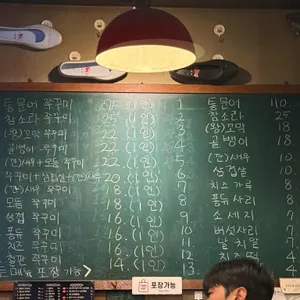 통문어 쭈꾸미 275.(1인) 1. 통문어 110.
참소라 쭈꾸미 25.(1인) 2. 참소라 25
(왕)꼬막 쭈꾸미 22.(1인) 3. (왕)꼬막 18
골뱅이 쭈꾸미 22.(1인) 4. 골뱅이 18.
(간)새우+모듬 쭈꾸미 22.(1인) 5. (간)새우 7
쭈꾸미+삼겹+(간)새우 20.(1인) 6. 생겹살
(간)새우 쭈꾸미 18.(1인) 7. 치즈 가루 8
모듬 쭈꾸미 18.(1인) 8. 퐁듀 사리 8
삼겹 쭈꾸미 16.(1인) 9. 소세지 7
퐁듀 쭈꾸미 16.(1인) 10. 버섯사리
치즈 쭈꾸미 16.(1인) 11. 날치알 7
철판 쭈꾸미 14.(1인) 12. 치즈떡
포장 가능 13.
포장가능